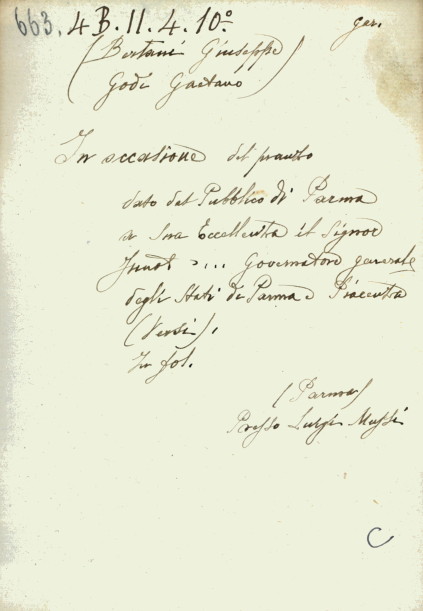 663. 4 B. II. 4. 10º. ger.
(Bertani Giuseppe)
(Godi Gaetano)
In occasione del pranzo
dato dal Pubblico di Parma
a Sua Eccellenza il Signor
Junot .... Governatore generale
degli Stati di Parma e Piacenza
(Versi).
In fol.
(Parma)
Presso Luigi Mussi
C